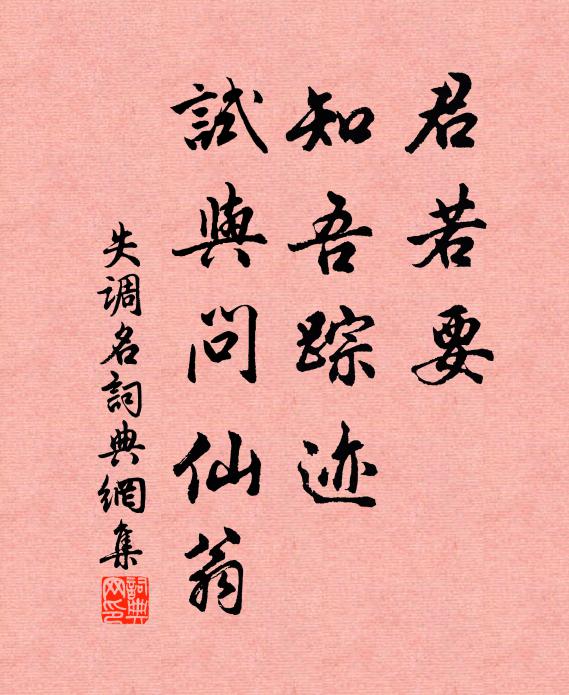 君若要
知吾踪迹
試與問仙翁
失调名詞典網集
詞典网印